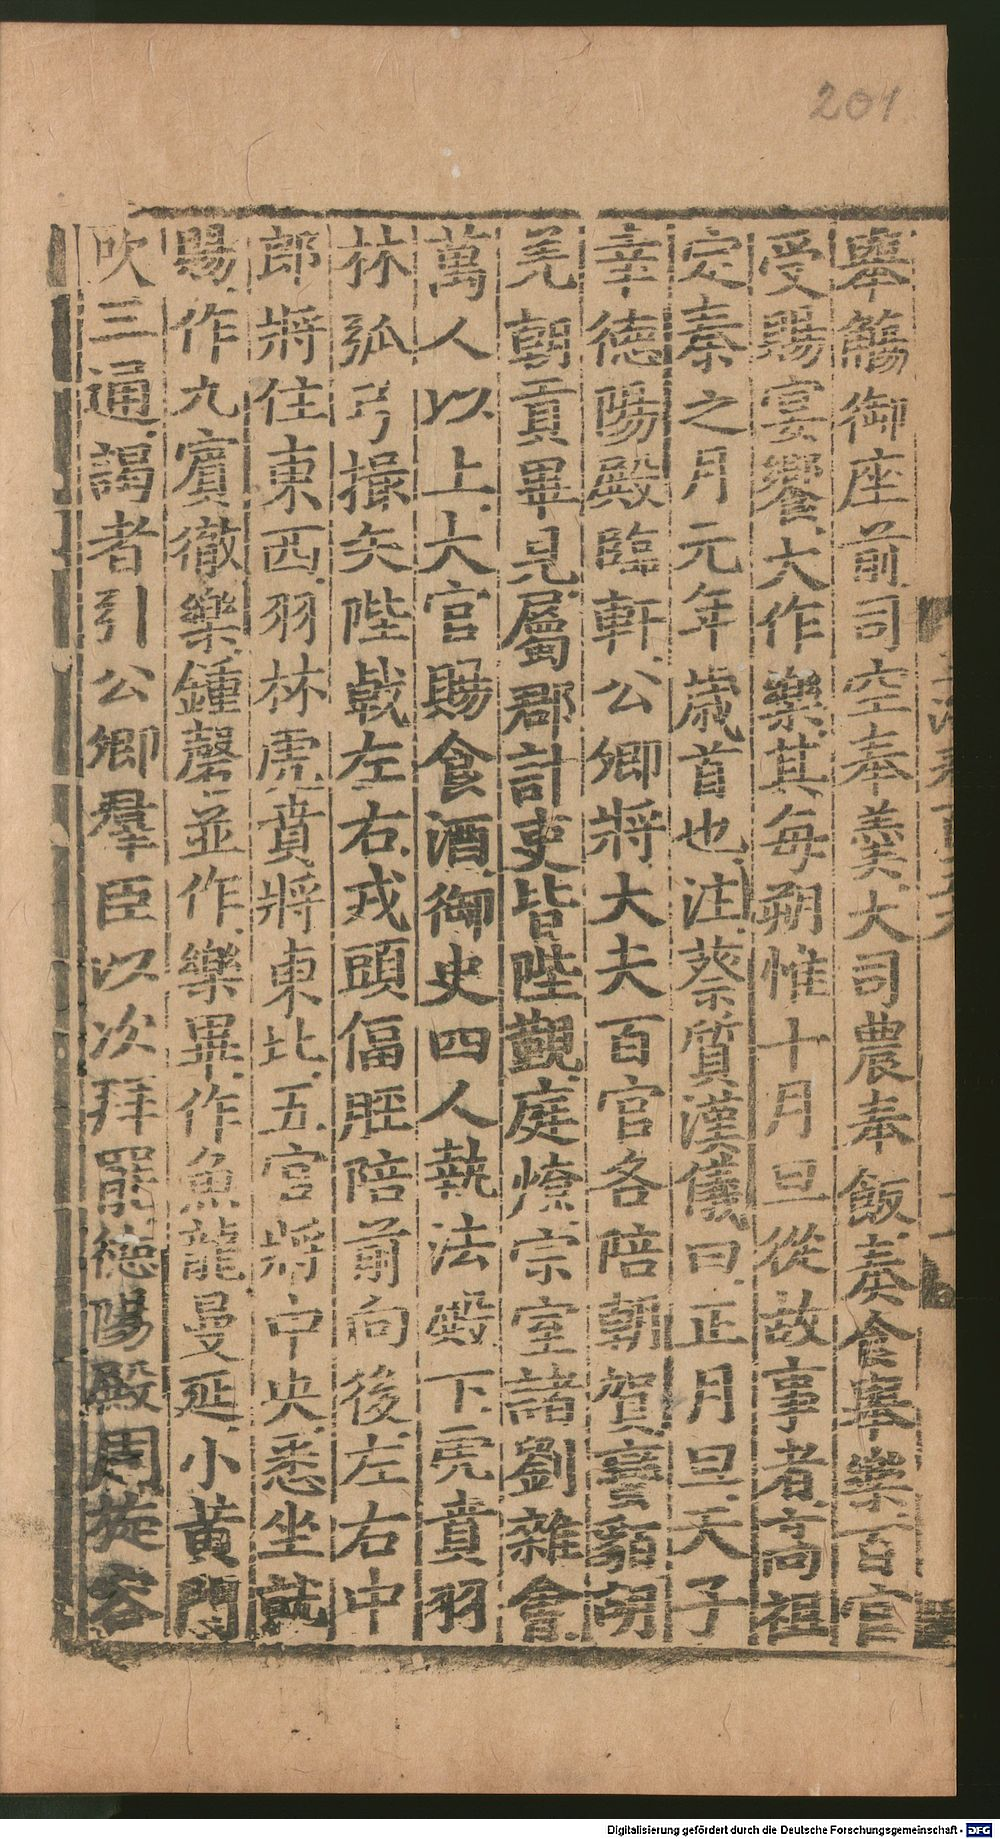 201
舉觴御座前司空奉羮大司農奉飯奏食舉樂百官
受賜宴饗大作樂其每朔惟十月旦從故事者高祖
定秦之月元年歲首也注蔡質漢儀曰正月旦天子
幸德陽殿臨軒公卿將大夫百官各陪朝賀蠻貊胡
羌朝貢畢見屬郡計吏皆陛觀庭燎宗室諸劉雜會
萬人以上大官賜食酒御史四人執法殿下虎賁羽
林弧弓撮矢陛戟左右戎頭偪脛陪前向後左右中
郎將住東西羽林虎賁將東北五官將中央悉坐就
賜作九賓徹樂鍾磬並作樂畢作魚龍曼延小黃門
吹三通謁者引公卿羣臣以次拜罷德陽殿周旋容
Digitalisierung gefördert durch die Deutsche Forschungsgemeinschaft - DFG